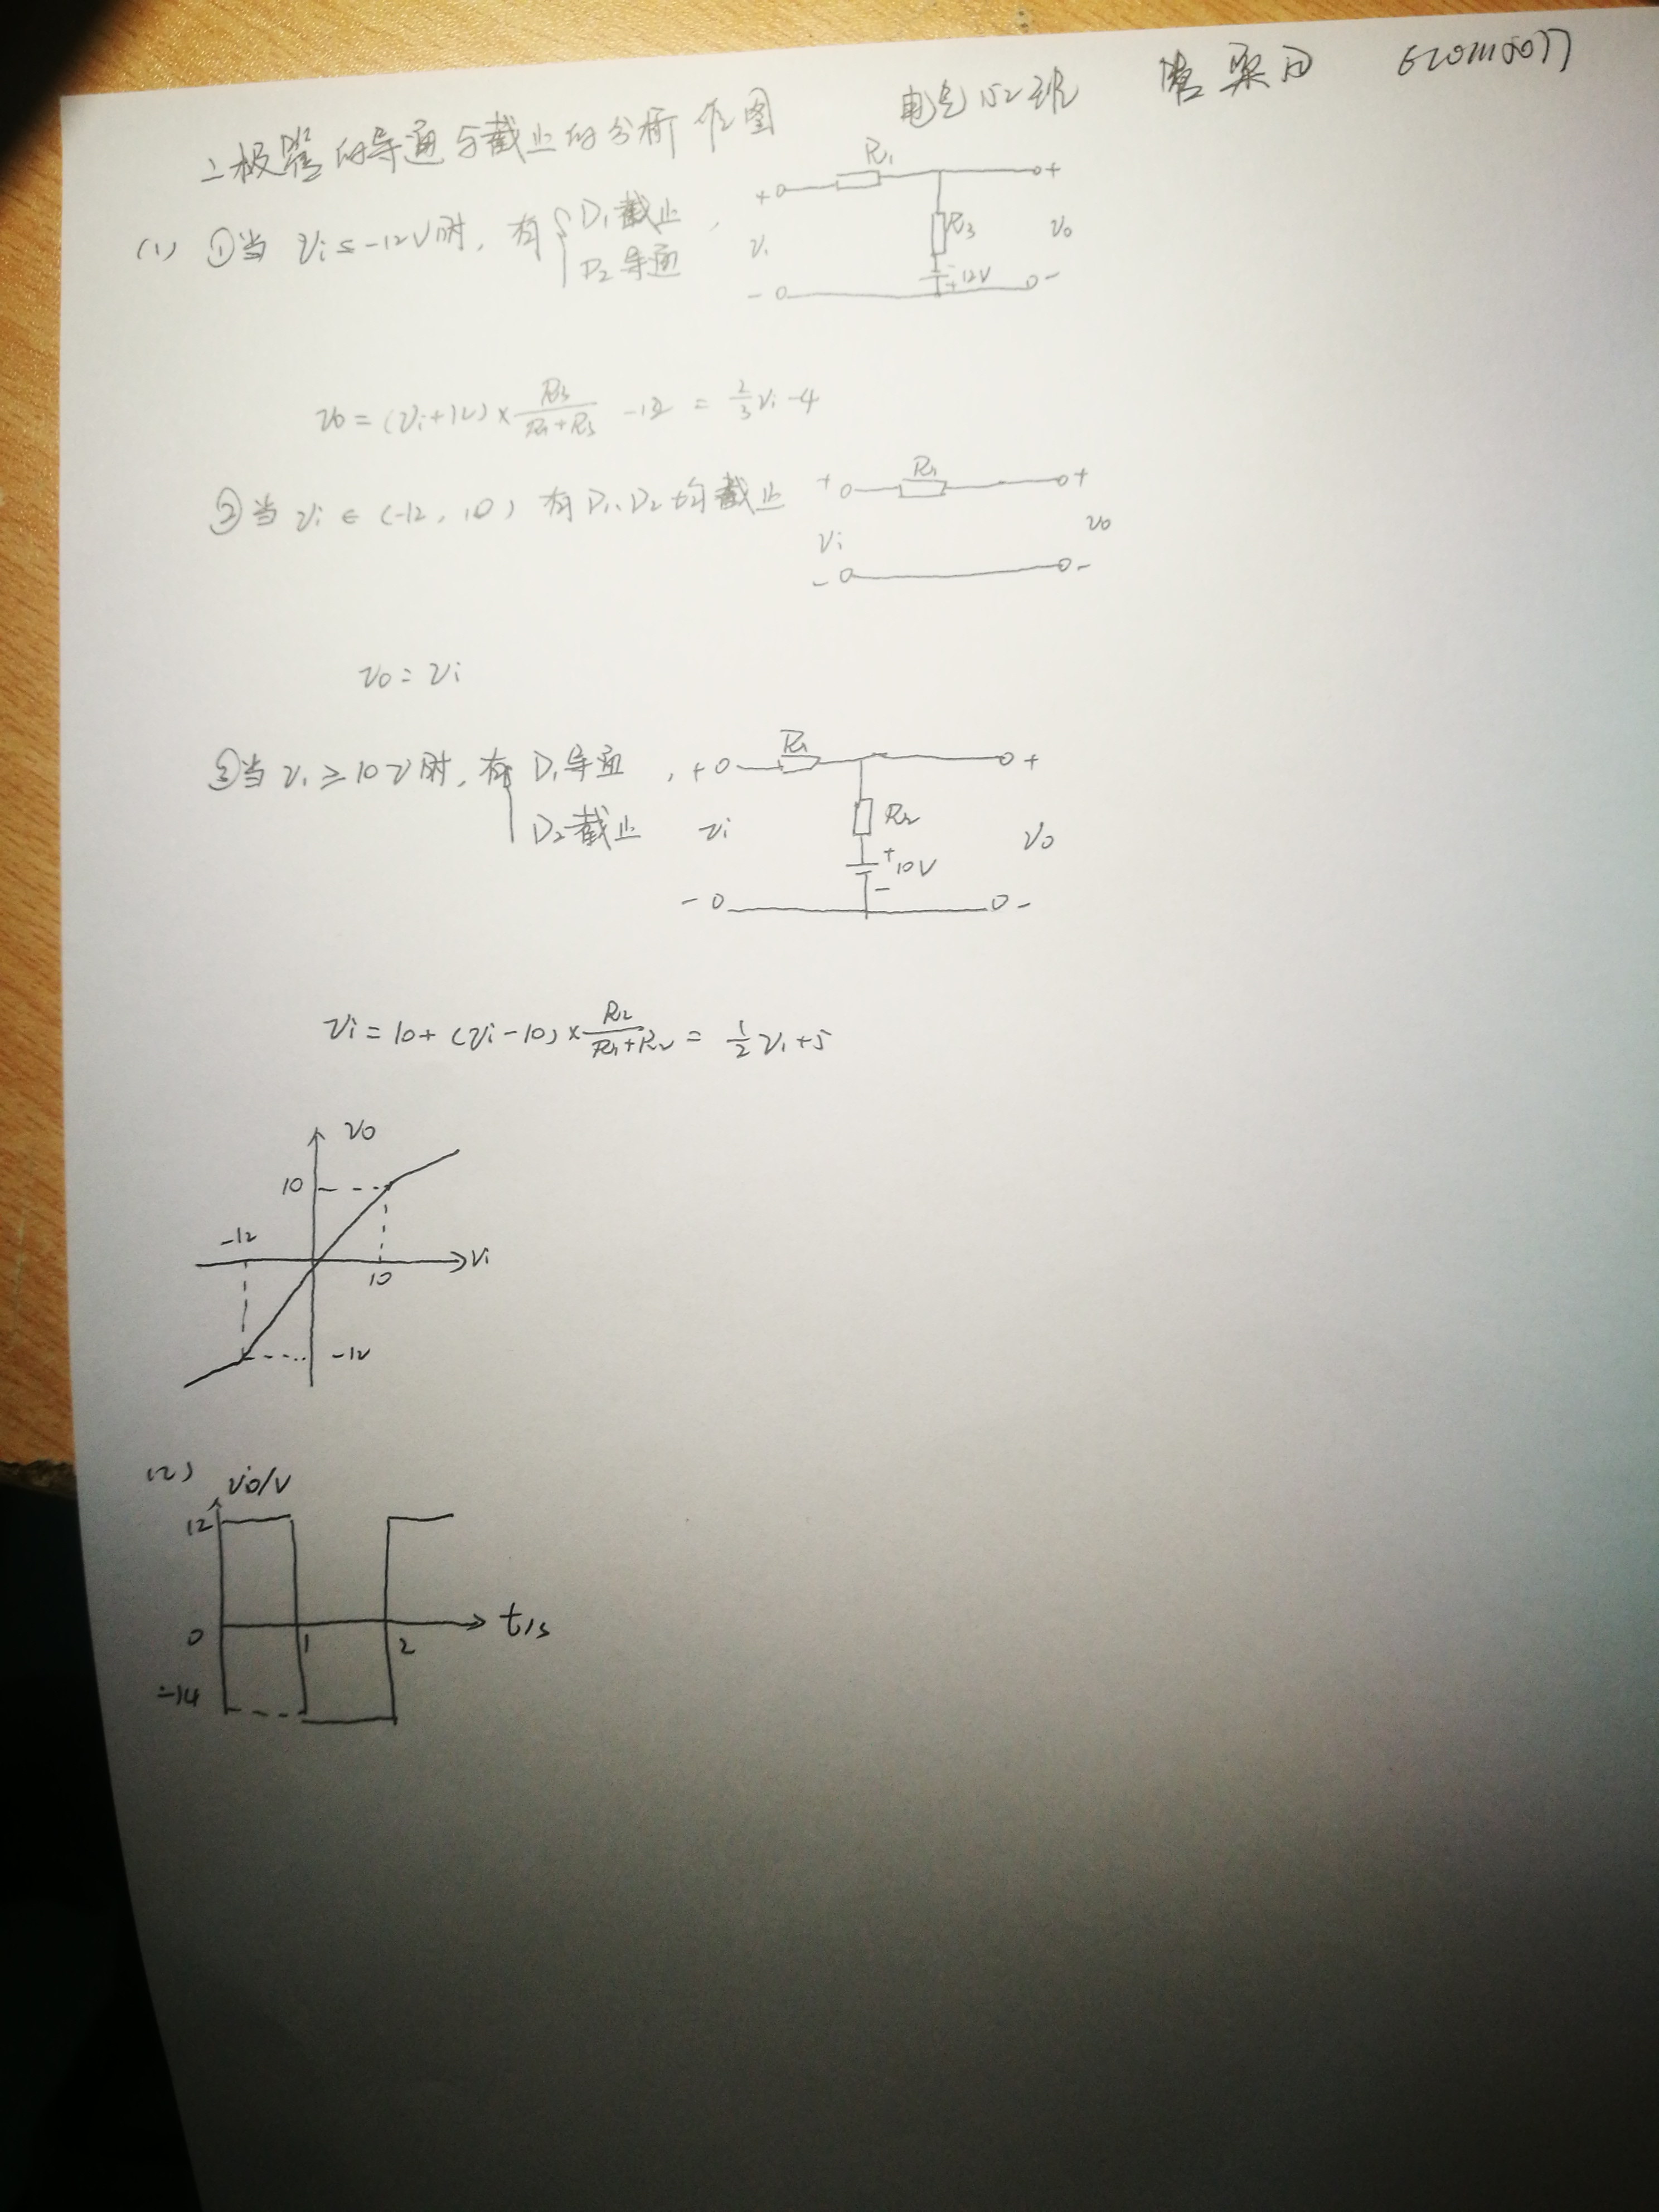 二极管的导通与截止的分析作图 电气152班
(1) ①当 Vi≤-12V时, 有{D1截止, D2导通
+ R1 +
Vi R3 Vo
- 12V + -
Vo=(Vi+12)×R3/(R1+R3) -12 = 2/3Vi-4
②当 Vi∈(-12, 10) 有D1、D2均截止
+ R1 +
Vi Vo
- -
Vo=Vi
③当 Vi≥10V时, 有{D1导通, D2截止
+ R1 +
Vi R2 Vo
+ 10V -
- -
Vi=10+(Vi-10)×R2/(R1+R2) = 1/2Vi+5
Vo
10
-12
10 Vi
-12
(2) Vo/V
12
0 1 2 t/s
-14